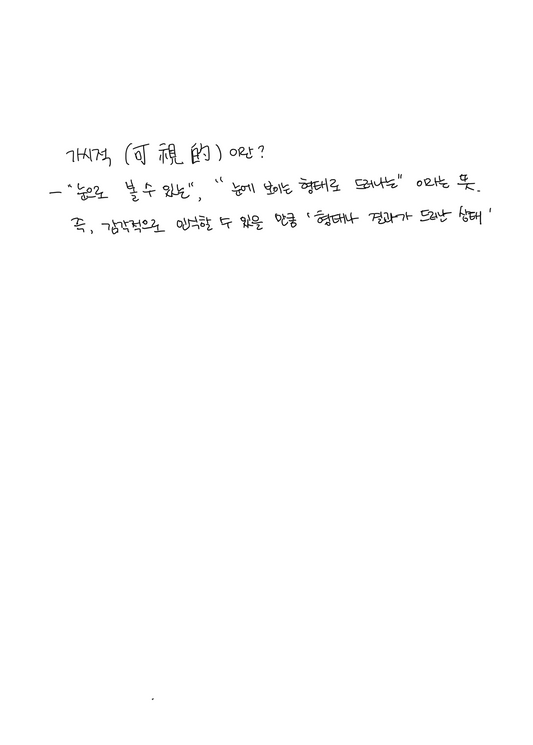 가시적 (可視的) 이란?
- "눈으로 볼 수 있는", "눈에 보이는 형태로 드러나는" 이라는 뜻.
즉, 감각적으로 인식할 수 있을 만큼 '형태나 결과가 드러난 상태'